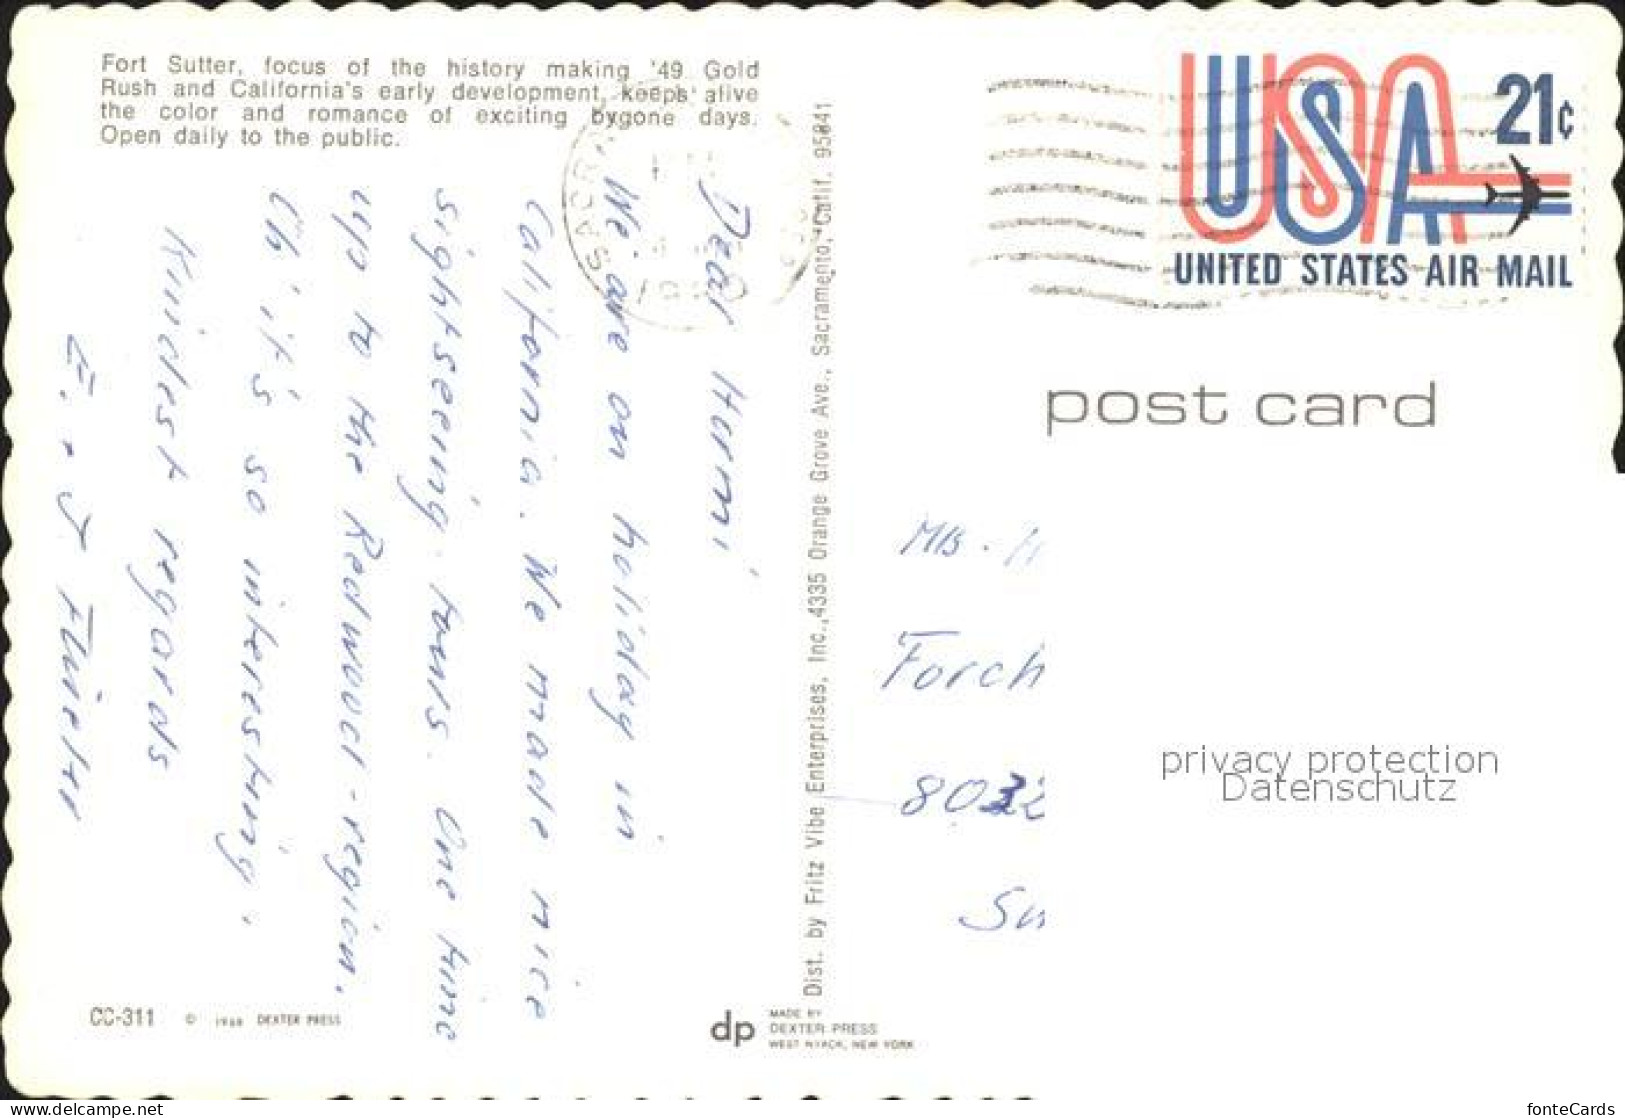 Fort Sutter, focus of the history making '49 Gold
Rush and California's early development, keeps alive
the color and romance of exciting bygone days.
Open daily to the public.
Dear Hermi
We are on holiday in
California. We made nice
sightseeing-tours. One time
up to the Redwood-region.
Oh, it's so interesting.
Kindest regards
CC-311 © 1968 DEXTER PRESS
dp MADE BY
DEXTER PRESS
WEST NYACK, NEW YORK
Dist. by Fritz Vibe Enterprises, Inc., 4335 Orange Grove Ave., Sacramento, Calif. 95841
SACR
USA 21c
UNITED STATES AIR MAIL
post card
Forch
privacy protection
Datenschutz
fonteCards